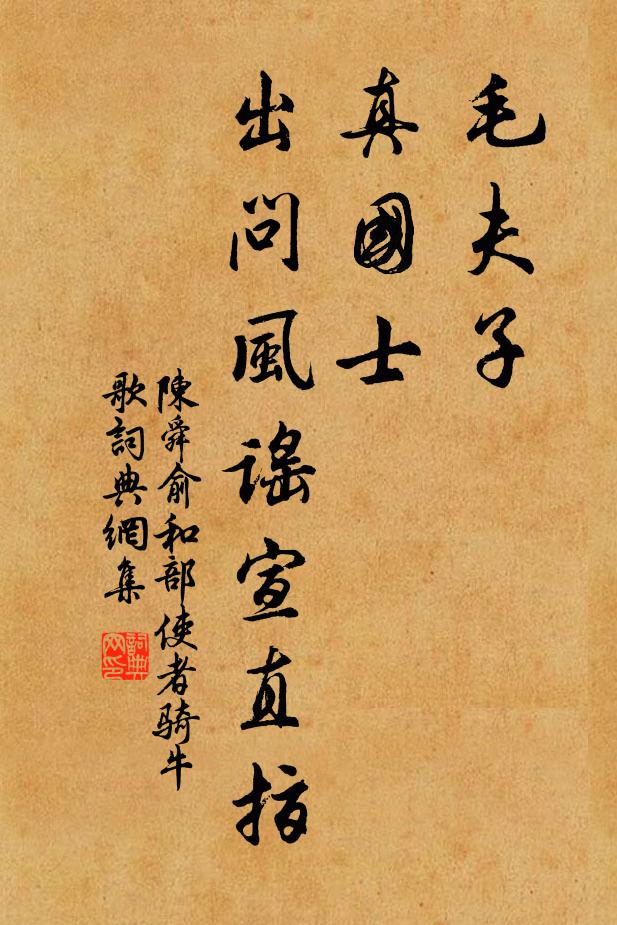 毛夫子
真國士
出問風謠宣直指
陳舜俞和部使者骑牛
歌詞典網集
詞典
网印